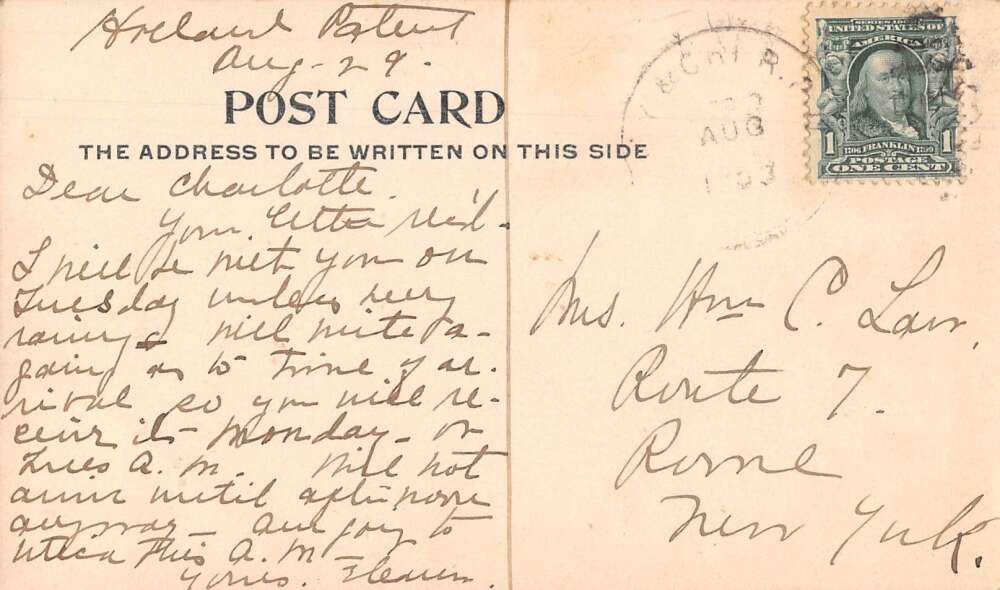 Holland Patent
Aug - 29.
POST CARD
THE ADDRESS TO BE WRITTEN ON THIS SIDE
Dear Charlotte.
Your letter rec'd -
I will be with you on
Tuesday unless very
rainy & will write a-
gain as to time of ar-
rival so you will re-
ceive it Monday - or
Tues A.M. Will not
arrive until afternoon
anyway - am going to
Utica this A.M -
Yours. Eleanor.
R.
AUG
SERIES 1902
UNITED STATES OF
AMERICA
1 1706 FRANKLIN 1790 1
POSTAGE
ONE CENT
Mrs. Wm C. Law,
Route 7.
Rome
New York.